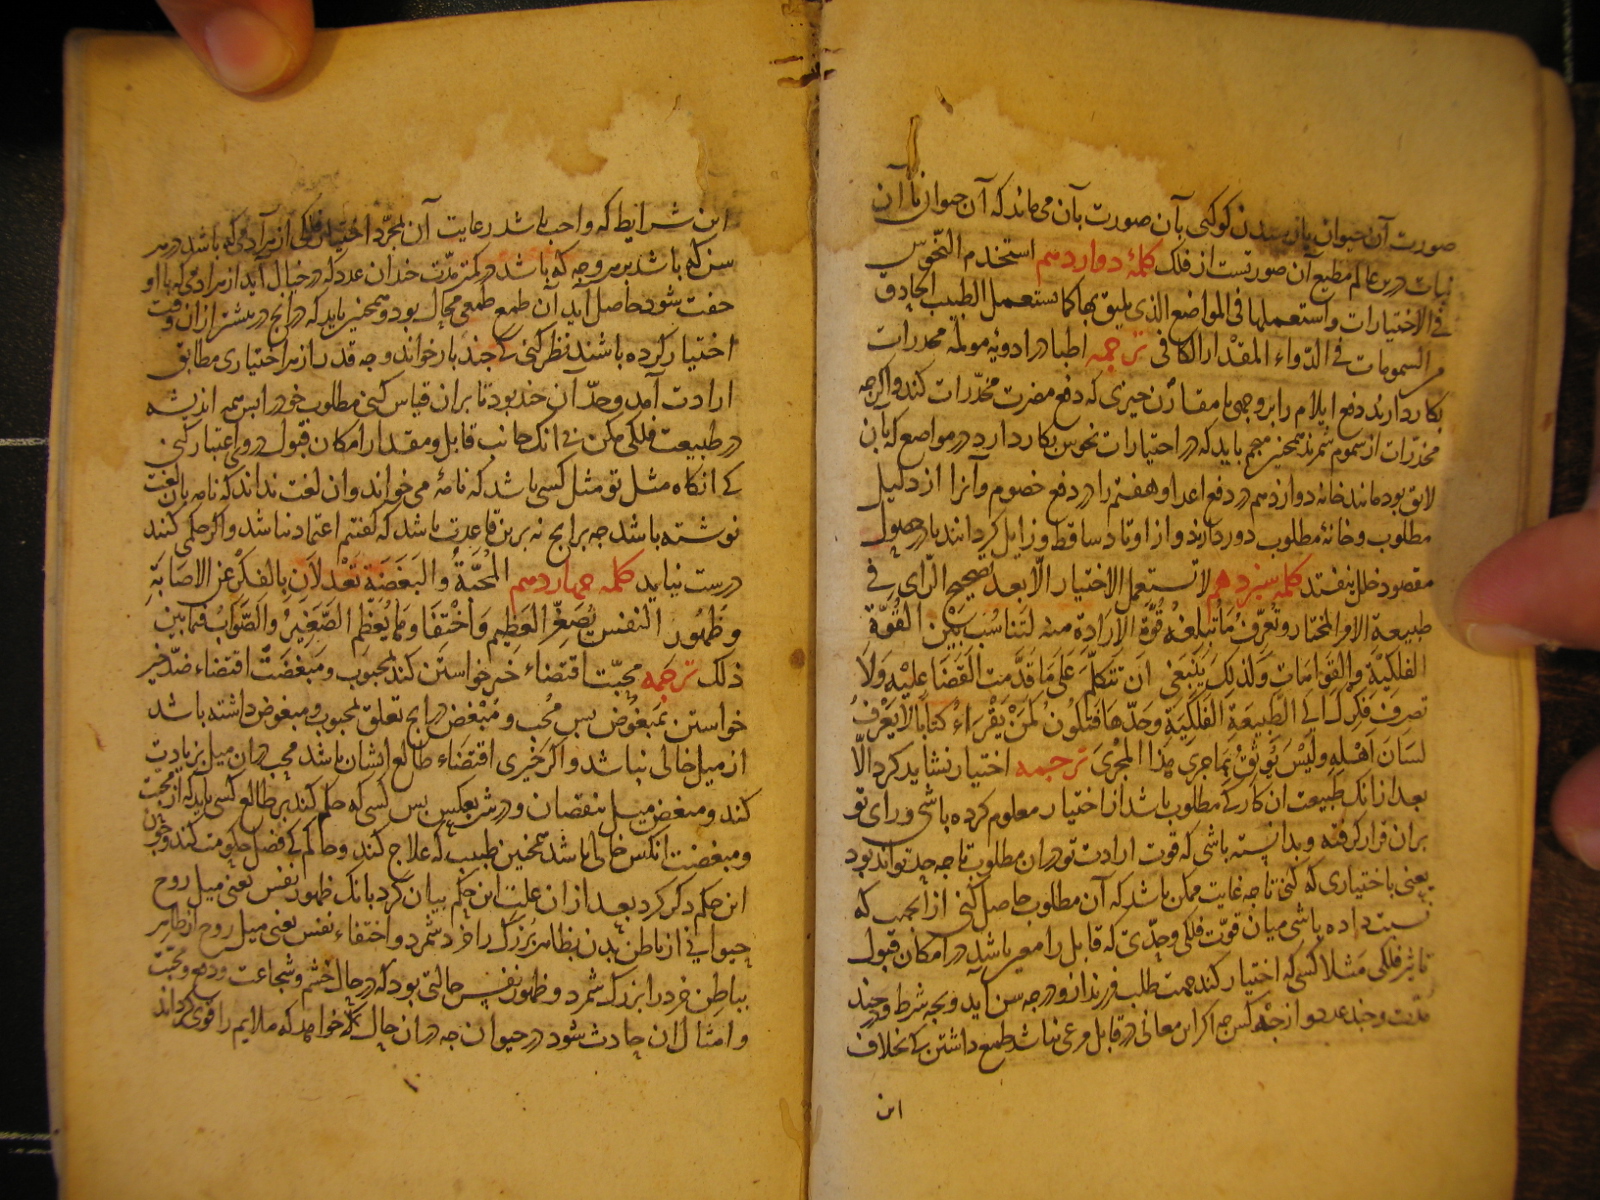 صورت آن حیوان یا رسیدن کوکبی بآن صورت بآن می‌ماند که آن حیوان یا آن
نبات درین عالم مطیع آن صورتست از فلک کلمهٔ دواردهم استخدم النحوس
فی الاختیارات واستعملها فی المواضع الذی یلیق بها کما یستعمل الطبیب الحاذق
من السمومات فی الدّواء المقدار الکافی ترجمه اطبا در ادویه مولمه مخدرات
بکار دارند دفع ایلام را بر وجهی با مقارن چیزی که دفع مضرت مخدّرات کند و اگرچه
مخدّرات از سموم شمرند همچنین منجم باید که در اختیارات نحوس بکار دارد در مواضع که بآن
لایق بود مانند خانهٔ دوازدهم در دفع اعدا و هفتم را در دفع خصوم و آنرا از دلیل
مطلوب و خانهٔ مطلوب دور دارند و از اوتاد ساقط و زایل گردانند تا در حصول
مقصود خلل نیفتد کلمه سیزدهم لا تستعمل الاختیار الّا بعد تصحیح الرّای فی
طبیعة الامر المختار و تعرّف ما تبلغه قوّة الارادة منه لتناسب بین القوّة
الفلکیّة والقوامات ولذلک ینبغی ان تتکلّم علی ما قدّمت القضا علیه ولا
تصرف فکرک الی الطّبیعة الفلکیّة وحدها فتکون کمن یقراء کتابا لا یعرف
لسان اهله ولیس یوثق بما جری هذا المجری ترجمه اختیار نشاید کرد الّا
بعد از آنک طبیعت آن کار که مطلوب باشد از اختیار معلوم کرده باشی و رای تو
بران قرار گرفته و بدانسته باشی که قوت ارادت تو در آن مطلوب تا چه حد تواند بود
یعنی باختیاری که کنی تا چه غایت ممکن باشد که آن مطلوب حاصل کنی از آنجهت که
نسبت داده باشی میان قوّت فلکی وحدّی که قابل را معین باشد در امکان قبول
تاثیر فلکی مثلا کسی که اختیار کند جهت طلب فرزند او در چه سن آید و بچه شرط و در چند
مدّت و چند عدد و از چه کس چه اگر این معانی در قابل مرعی نباشد طمع داشتن که بخلاف
این
این شرایط که واجب باشد رعایت آن بمجرّد اختیار فلکی از هر آدمی که باشد در هر
سن که باشد بر هر وجه که باشد در کمتر مدّت چندان عدد که در خیال آید از هر آدمی که با او
جفت شود حاصل آید آن طمع طمعی محال بود و همچنین باید که در آنچ در پیشتر از آن وقت
اختیار کرده باشند نظر کنی که چند بار خواند و چه قدر از هر اختیاری مطابق
ارادت آمد و حدّ آن چند بود تا بران قیاس کنی مطلوب خود را پس همه اندیشه
در طبیعت فلکی مکن بی آنک جانب قابل و مقدار امکان قبول در وی اعتبار کنی
که آنگاه مثل تو مثل کسی باشد که نامهٔ می‌خواند و آن لغت نداند که نامه بآن لغت
نوشته باشد چه بر آنچ نه برین قاعدت باشد که گفتم اعتماد نباشد و اگر حکمی کنند
درست نیاید کلمه چهاردهم المحبّة والبغضة تعدلان بالفکر عن الاصابة
وظهور النفس یصغّر العظیم واختفاوها یعظّم الصّغیر والصّواب فیما بین
ذلک ترجمه محبّت اقتضاء خیر خواستن کند بمحبوب و مبغضت اقتضاء ضدّ خیر
خواستن بمبغوض پس محب و مبغض در آنچ تعلق بمحبوب و مبغوض داشته باشد
از میل خالی نباشد و اگر خیری اقتضاء طالع ایشان باشد محب در آن میل بزیادت
کند و مبغض میل بنقصان و در شر بعکس پس کسی که حکم کند بر طالع کسی باید که از محبت
و مبغضت آنکس خالی باشد همچنین طبیب که علاج کند و حاکم که فصل حکومت کند و چون
این حکم ذکر کرد بعد از ان علّت این حکم بیان کرد بانک ظهور نفس یعنی میل روح
حیوانی از باطن بدن بظاهر بزرگ را خرد شمرد و اختفاء نفس یعنی میل روح از ظاهر
بباطن خرد را بزرگ شمرد و ظهور نفس حالتی بود که در حال خشم و شجاعت و دفع و محبّت
و امثال آن حادث شود در حیوان چه در آن حال که خواهد که ملایم را قوی گرداند